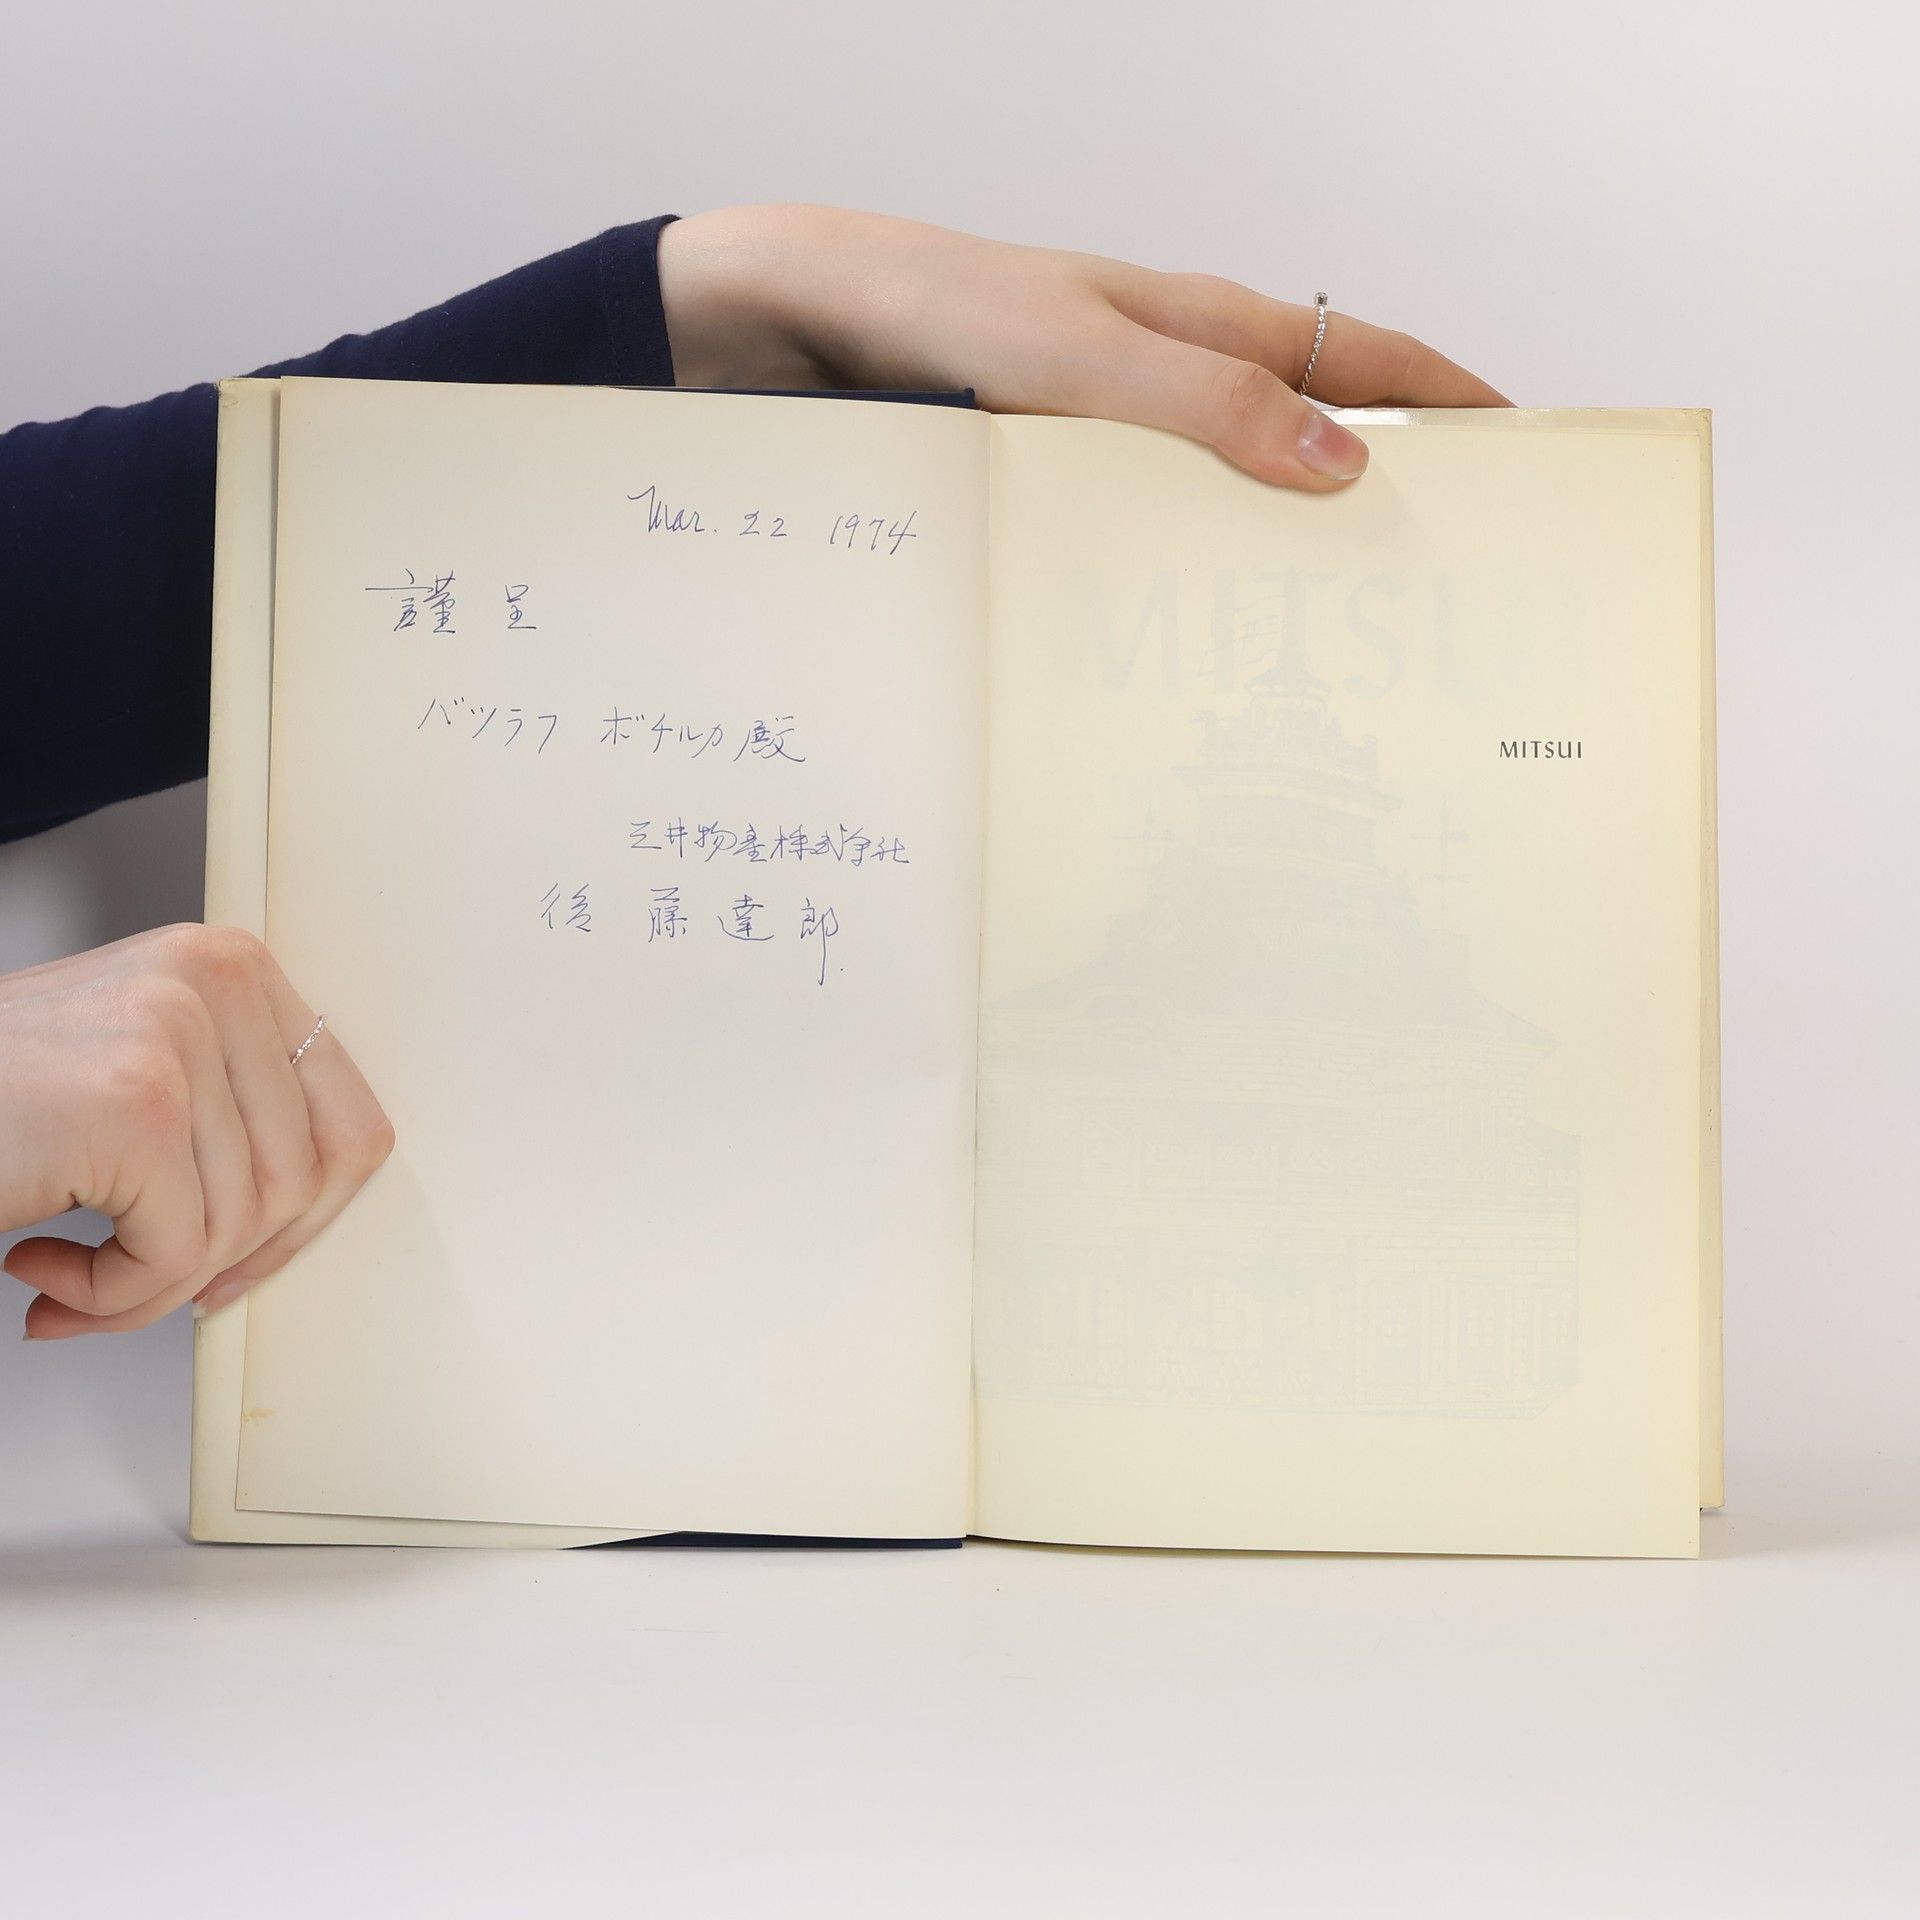 Mar. 22 1974
謹呈
バツラフ ボチルカ殿
三井物産株式会社
後藤達郎.
MITSUI
MITSUI